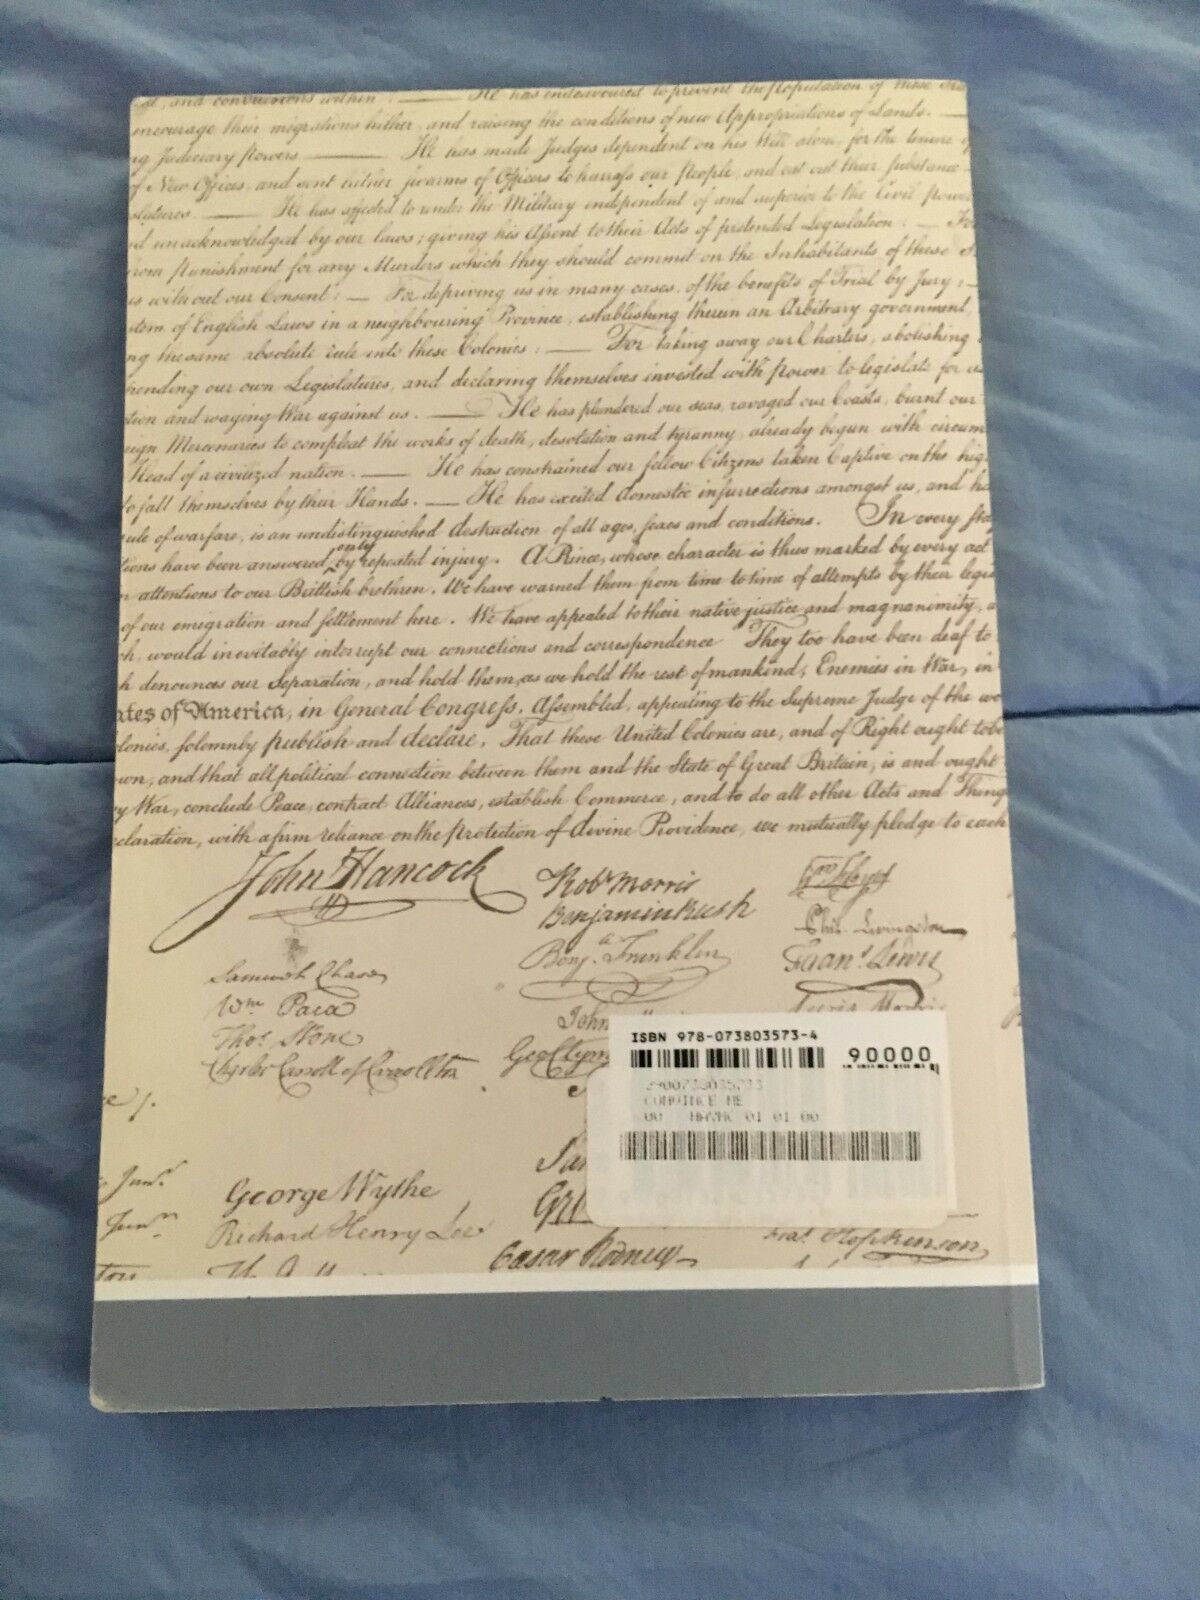 and convulsions within. — He has endeavoured to prevent the Population of these
encourage their migrations hither, and raising the conditions of new Appropriations of Lands. —
ng Judiciary Powers — He has made Judges dependent on his Will alone, for the tenure of
of New Offices, and sent hither swarms of Officers to harrass our People, and eat out their substance
slatures. — He has affected to render the Military independent of and superior to the Civil Power
nd unacknowledged by our laws; giving his Assent to their Acts of pretended Legislation: — For
rom Punishment for any Murders which they should commit on the Inhabitants of these
us without our Consent: — For depriving us in many cases, of the benefits of Trial by Jury: —
stem of English Laws in a neighbouring Province, establishing therein an Arbitrary government,
ng the same absolute rule into these Colonies: — For taking away our Charters, abolishing
pending our own Legislatures, and declaring themselves invested with Power to legislate for us
ction and waging War against us. — He has plundered our seas, ravaged our Coasts, burnt our
eign Mercenaries to compleat the works of death, desolation and tyranny, already begun with circum
Head of a civilized nation. — He has constrained our fellow Citizens taken Captive on the hig
to fall themselves by their Hands. — He has excited domestic insurrections amongst us, and ha
rule of warfare, is an undistinguished destruction of all ages, sexes and conditions. In every sta
tions have been answered only by repeated injury. A Prince, whose character is thus marked by every act
n attentions to our Brittish brethren. We have warned them from time to time of attempts by their legis
of our emigration and settlement here. We have appealed to their native justice and magnanimity, a
ch, would inevitably interrupt our connections and correspondence They too have been deaf to
h denounces our Separation, and hold them, as we hold the rest of mankind, Enemies in War, in
ates of America, in General Congress, Assembled, appealing to the Supreme Judge of the wo
olonies, solemnly publish and declare, That these United Colonies are, and of Right ought to be
own, and that all political connection between them and the State of Great Britain, is and ought
vy War, conclude Peace, contract Alliances, establish Commerce, and to do all other Acts and Thing
eclaration, with a firm reliance on the protection of divine Providence, we mutually pledge to each
John Hancock
Samuel Chase
Wm Paca
Thos Stone
Charles Carroll of Carrollton
George Wythe
Richard Henry Lee
Robt Morris
Benjamin Rush
Benja. Franklin
John
Geo Clymer
Caesar Rodney
Wm Floyd
Phil. Livingston
Frans. Lewis
Lewis Morris
Fras. Hopkinson
ISBN 978-073803573-4
90000
CONVINCE ME
01 01 00